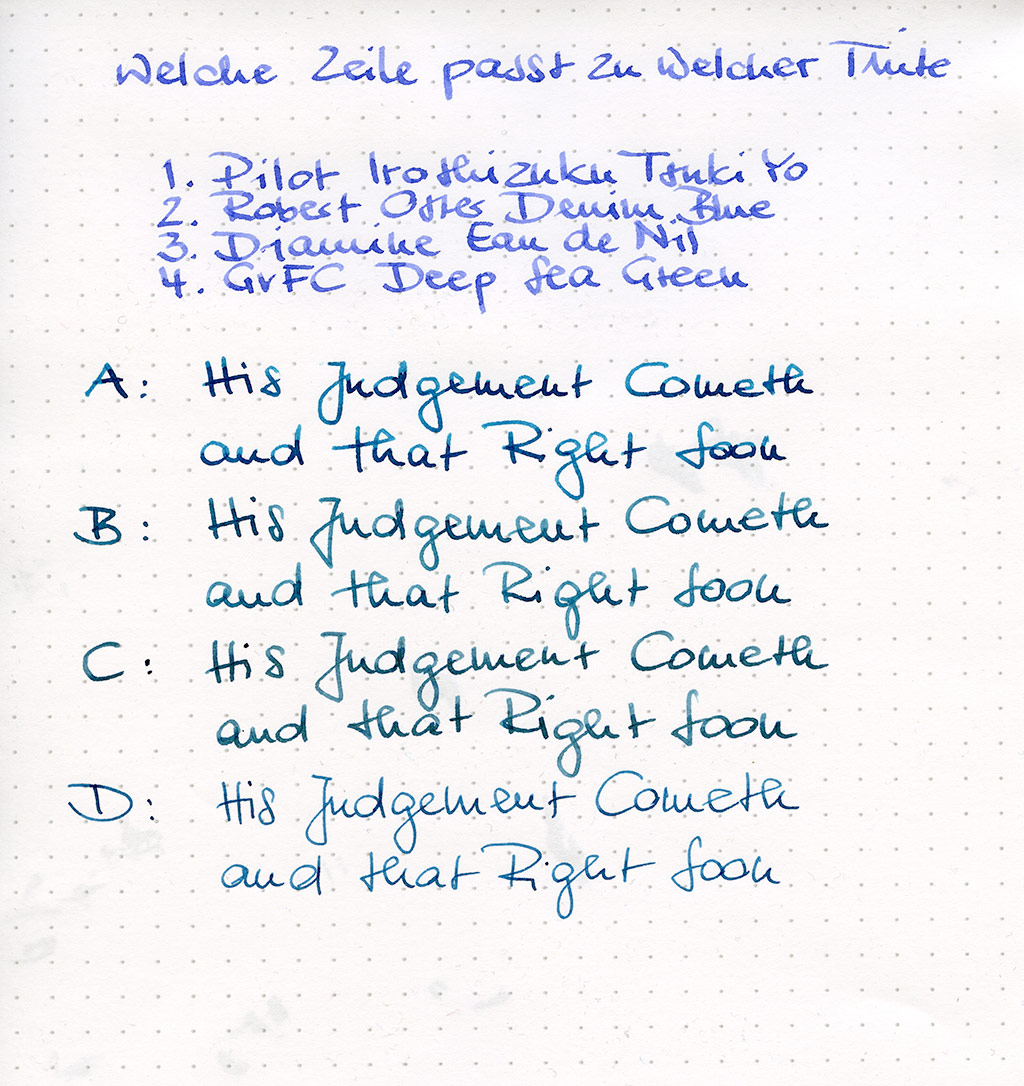 Welche Zeile passt zu welcher Tinte
1. Pilot Iroshizuku Tsuki Yo
2. Robert Oster Denim Blue
3. Diamine Eau de Nil
4. GvFC Deep Sea Green
A: His Judgement Cometh
and that Right Soon
B: His Judgement Cometh
and that Right Soon
C: His Judgement Cometh
and that Right Soon
D: His Judgement Cometh
and that Right Soon